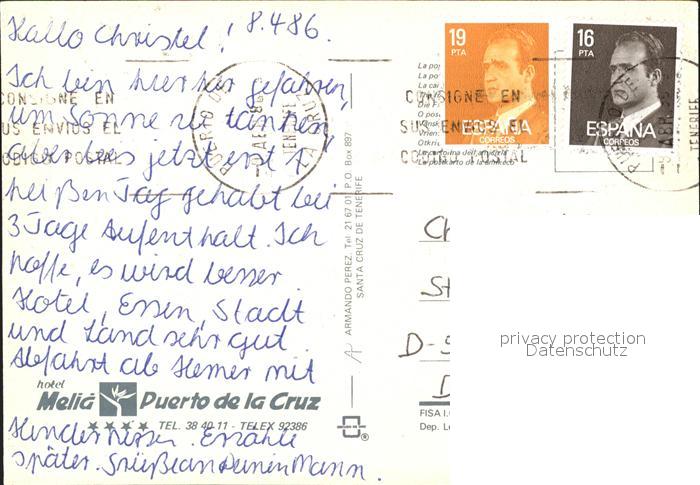 Hallo Christel! 8.4.86.
Ich bin hierher gefahren,
um Sonne zu tanken,
aber bis jetzt erst 1
heißen Tag gehabt bei
3 Tage Aufenthalt. Ich
hoffe, es wird besser.
Hotel, Essen, Stadt
und Land sehr gut.
Abfahrt ab Hemer mit
hotel
Meliá Puerto de la Cruz
TEL. 38 40 11 - TELEX 92386
Hindernissen. Erzähle
später. Grüße an Deinen Mann.
CONSIGNE EN
SUS ENVIOS EL
CODIGO POSTAL
PUERTO DE LA CRUZ
TENERIFE
ARMANDO PEREZ. Tel. 21 67 01 P.O. Box 897
SANTA CRUZ DE TENERIFE
19
PTA
ESPAÑA
CORREOS
16
PTA
ESPAÑA
CORREOS
CONSIGNE EN
SUS ENVIOS EL
CODIGO POSTAL
La cartolina dell'amicizia
La postkarto de la amikeco
Ch
St
D-5
FISA I.
Dep. Le
privacy protection
Datenschutz